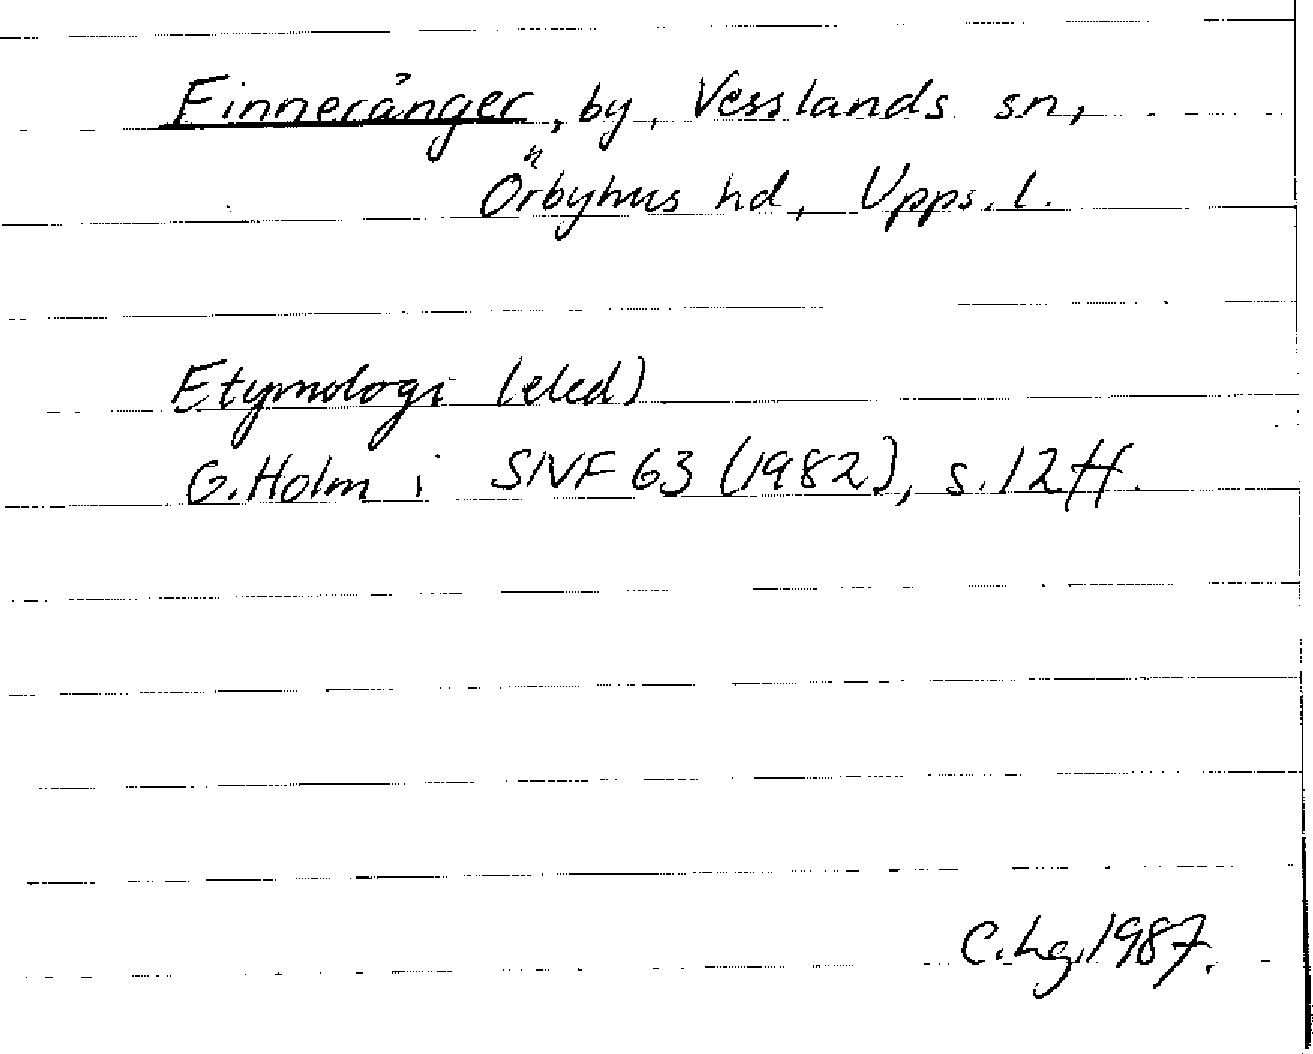 Finnerånger, by, Vesslands sn,
Örbyhus hd, Upps. l.
Etymologi (eled)
G. Holm i SNF 63 (1982), s. 12 ff.
C. Lg. 1987.